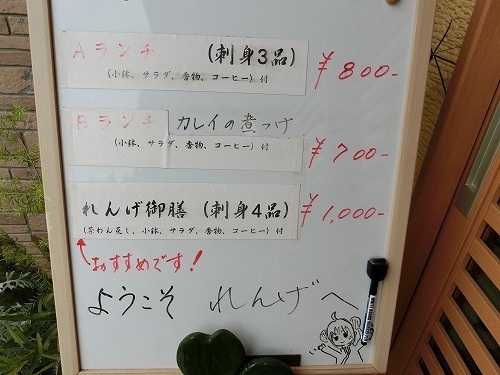 Aランチ (刺身3品) ¥800-
(小鉢、サラダ、香物、コーヒー)付
Bランチ カレイの煮つけ
(小鉢、サラダ、香物、コーヒー)付 ¥700-
れんげ御膳 (刺身4品) ¥1,000-
(茶わん蒸し、小鉢、サラダ、香物、コーヒー)付
おすすめです!
ようこそ れんげへ